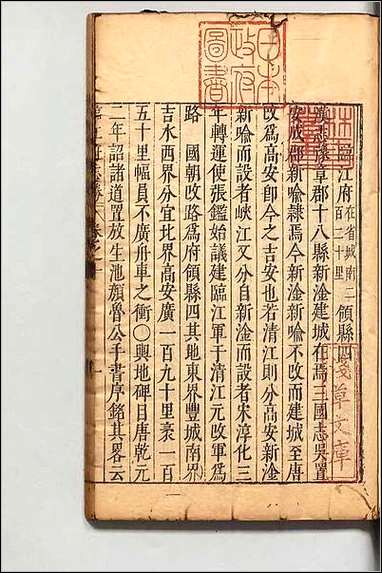 日本政府圖書
江府在省城南二百二十里領縣四
漢志豫章郡十八縣新淦建城在焉三國志吳置
安成郡新喻隸焉今新淦新喻不改而建城至唐
改爲高安卽今之吉安也若清江則分高安新淦
新喻而設者峽江又分自新淦而設者宋淳化三
年轉運使張鑑始議建臨江軍于清江元改軍爲
路 國朝改路爲府領縣四其地東界豐城南界
吉水西界分宜北界高安廣一百九十里袤一百
五十里幅員不廣舟車之衝○輿地碑目唐乾元
二年詔諸道置放生池顏魯公手書序銘其畧云
淺草文庫